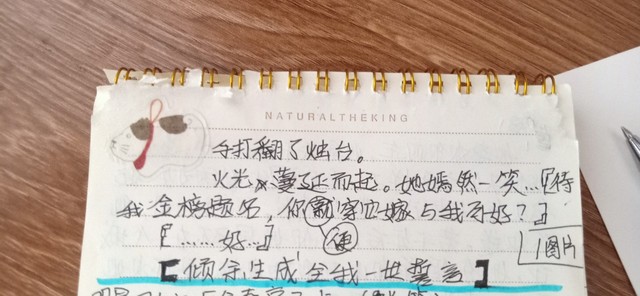 NATURALTHEKING
手打翻了烛台。
火光蔓了正而起。她嫣然一笑…『待
我金榜题名,你就穿嫁与我可好?』
便
『……好…』
1图片
【倾余生成全我一世誓言】